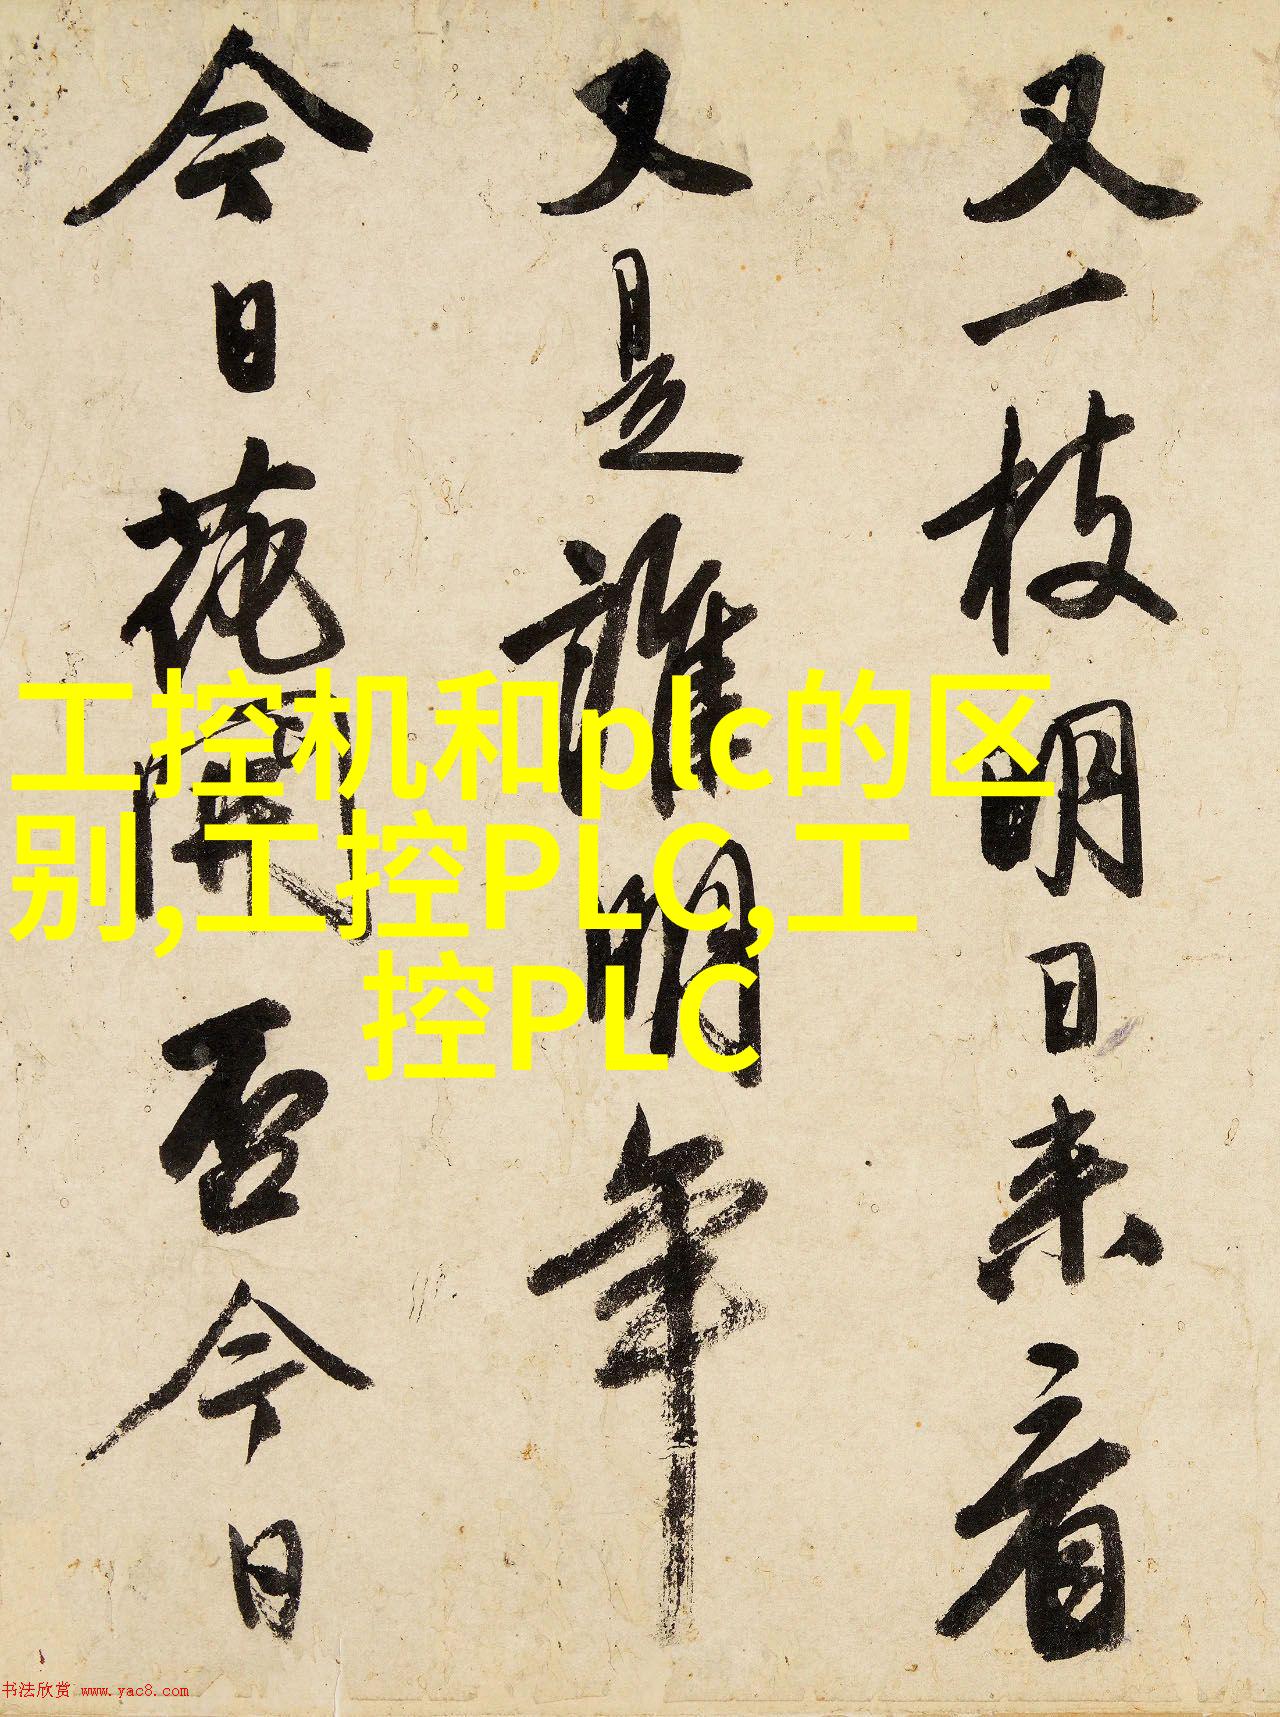 又一枝明日来看
又是誰明年
今日花開否今日
工控机和plc的区
别,工控PLC,工
控PLC
书法欣赏 www.yac8.com